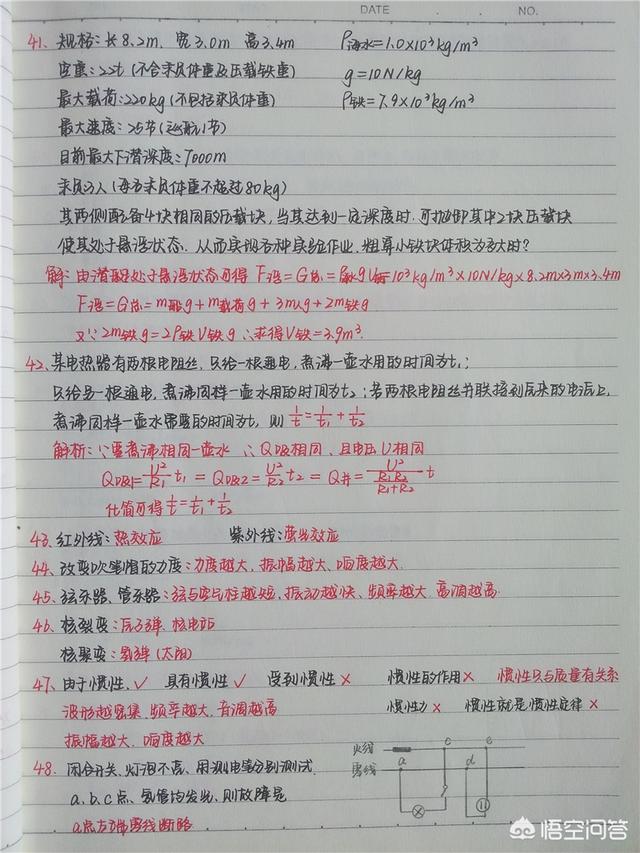 DATE NO.
41、规格: 长8.2m, 宽3.0m 高3.4m ρ海水=1.0×10³kg/m³
空重:22t (不含乘员体重及压载铁重) g=10N/kg
最大载荷:220kg (不包括乘员体重) ρ铁=7.9×10³kg/m³
最大速度: 25节(巡航1节)
目前最大下潜深度:7000m
乘员3人(每名乘员体重不超过80kg)
其两侧配备4块相同的压载块,当其达到一定深度时,可抛卸其中2块压载块
使其处于悬浮状态.从而实现各种实验作业.粗算小铁块体积为多大时?
解: 由潜艇处于悬浮状态可得 F浮=G总=ρ海gV排=10³kg/m³×10N/kg×8.2m×3m×3.4m
F浮=G总=m艇g+m载荷g+3m人g+2m铁g
又∵2m铁g=2ρ铁V铁g ∴求得V铁=3.9m³.
42、某电热器有两根电阻丝,只给一根通电,煮沸一壶水用的时间为t₁;
只给另一根通电,煮沸同样一壶水用的时间为t₂;若两根电阻丝并联接到原来的电源上,
煮沸同样一壶水需要的时间为t, 则 1/t=1/t₁+1/t₂
解析:∵要煮沸相同一壶水 ∴Q吸相同 且电压U相同
Q吸1=U²/R₁ t₁ = Q吸2=U²/R₂ t₂ = Q并=U²/(R₁R₂/(R₁+R₂)) t
化简可得1/t=1/t₁+1/t₂
43、红外线:热效应 紫外线:荧光效应
44、改变吹笔帽的力度:力度越大,振幅越大、响度越大.
45、弦乐器、管乐器:弦与空气柱越短,振动越快、频率越大 音调越高.
46、核裂变:原子弹 核电站
核聚变:氢弹(太阳)
47、由于惯性、✓ 具有惯性✓ 受到惯性× 惯性的作用× 惯性只与质量有关系
波形越密集,频率越大,音调越高 惯性力× 惯性就是惯性定律×
振幅越大、响度越大
48、闭合开关,灯泡不亮,用测电笔分别测试.
a、b、c点、氖管均发光,则故障是
a点左端零线断路
火线 c e
零线 a d
悟空问答